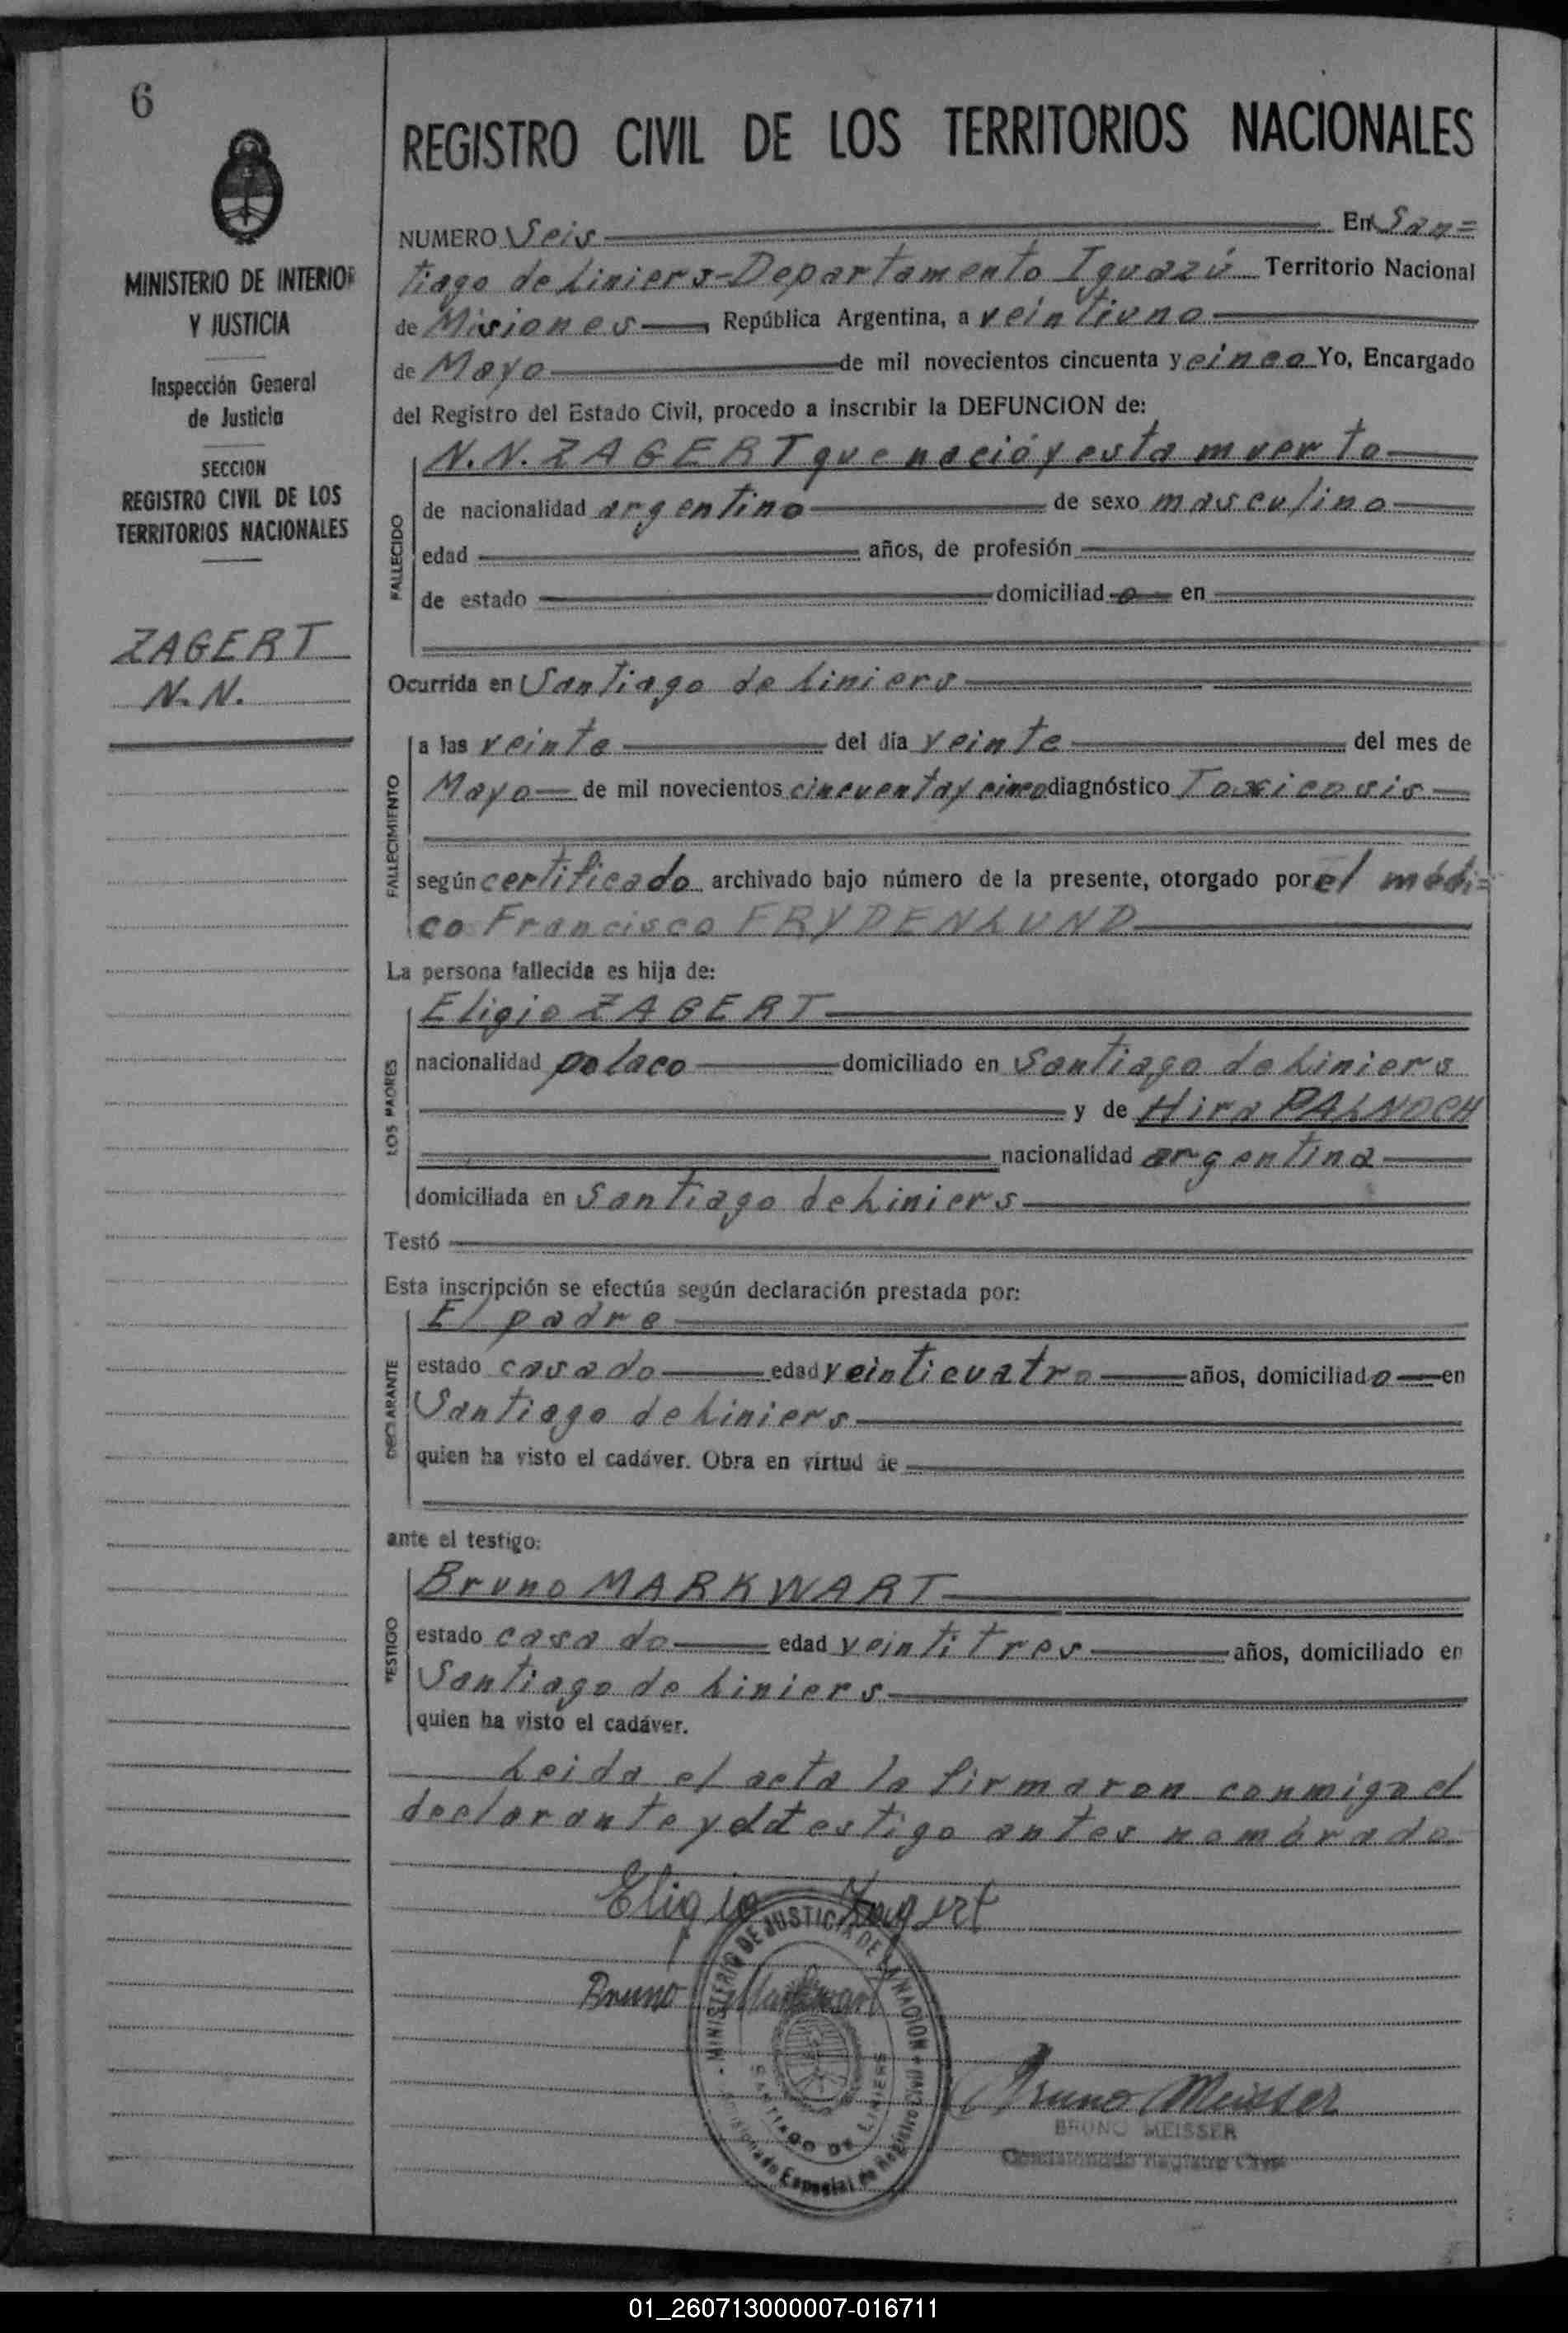 6
MINISTERIO DE INTERIOR
Y JUSTICIA
Inspección General
de Justicia
SECCION
REGISTRO CIVIL DE LOS
TERRITORIOS NACIONALES
ZAGERT
N. N.
REGISTRO CIVIL DE LOS TERRITORIOS NACIONALES
NUMERO Seis En San=
tiago de Liniers-Departamento Iguazú Territorio Nacional
de Misiones, República Argentina, a veintiuno
de Mayo de mil novecientos cincuenta y cinco Yo, Encargado
del Registro del Estado Civil, procedo a inscribir la DEFUNCION de:
N. N. ZAGERT que nació y esta muerto
FALLECIDO
de nacionalidad argentino de sexo masculino
edad años, de profesión
de estado domiciliado en
Ocurrida en Santiago de Liniers
FALLECIMIENTO
a las veinte del día veinte del mes de
Mayo de mil novecientos cincuenta y cinco diagnóstico Toxicosis
según certificado archivado bajo número de la presente, otorgado por el médi=
co Francisco FRYDENLUND
La persona fallecida es hija de:
LOS PADRES
Eligio ZAGERT
nacionalidad polaco domiciliado en Santiago de Liniers
y de Hira PALNOCH
nacionalidad argentina
domiciliada en Santiago de Liniers
Testó
Esta inscripción se efectúa según declaración prestada por:
DECLARANTE
El padre
estado casado edad veinticuatro años, domiciliado en
Santiago de Liniers
quien ha visto el cadáver. Obra en virtud de
ante el testigo:
TESTIGO
Bruno MARKWART
estado casado edad veintitres años, domiciliado en
Santiago de Liniers
quien ha visto el cadáver.
Leida el acta la firmaron conmigo el
declarante y el testigo antes nombrado
Eligio Zagert
Bruno Markwart
MINISTERIO DE JUSTICIA DE LA NACION
SANTIAGO DE LINIERS
Especial de Registro Civil
Bruno Meisser
BRUNO MEISSER
Comisionado Registro Civil
01_260713000007-016711